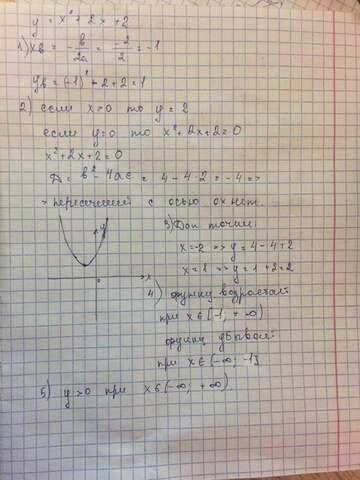 y = x² + 2x + 2
1) xв = -в/2a = -2/2 = -1
yв = (-1)² - 2 + 2 = 1
2) если x=0 то y = 2
если y=0 то x²+2x+2=0
x²+2x+2=0
D = в²-4ac = 4-4·2 = -4 =>
- пересечений с осью ox нет.
3) Доп точки:
x=-2 => y=4-4+2
x=1 => y=1+2+2
y
x
0
4) функц возрастает
при x∈[-1; +∞)
функц убывает
при x∈(-∞; -1]
5) y>0 при x∈(-∞; +∞)